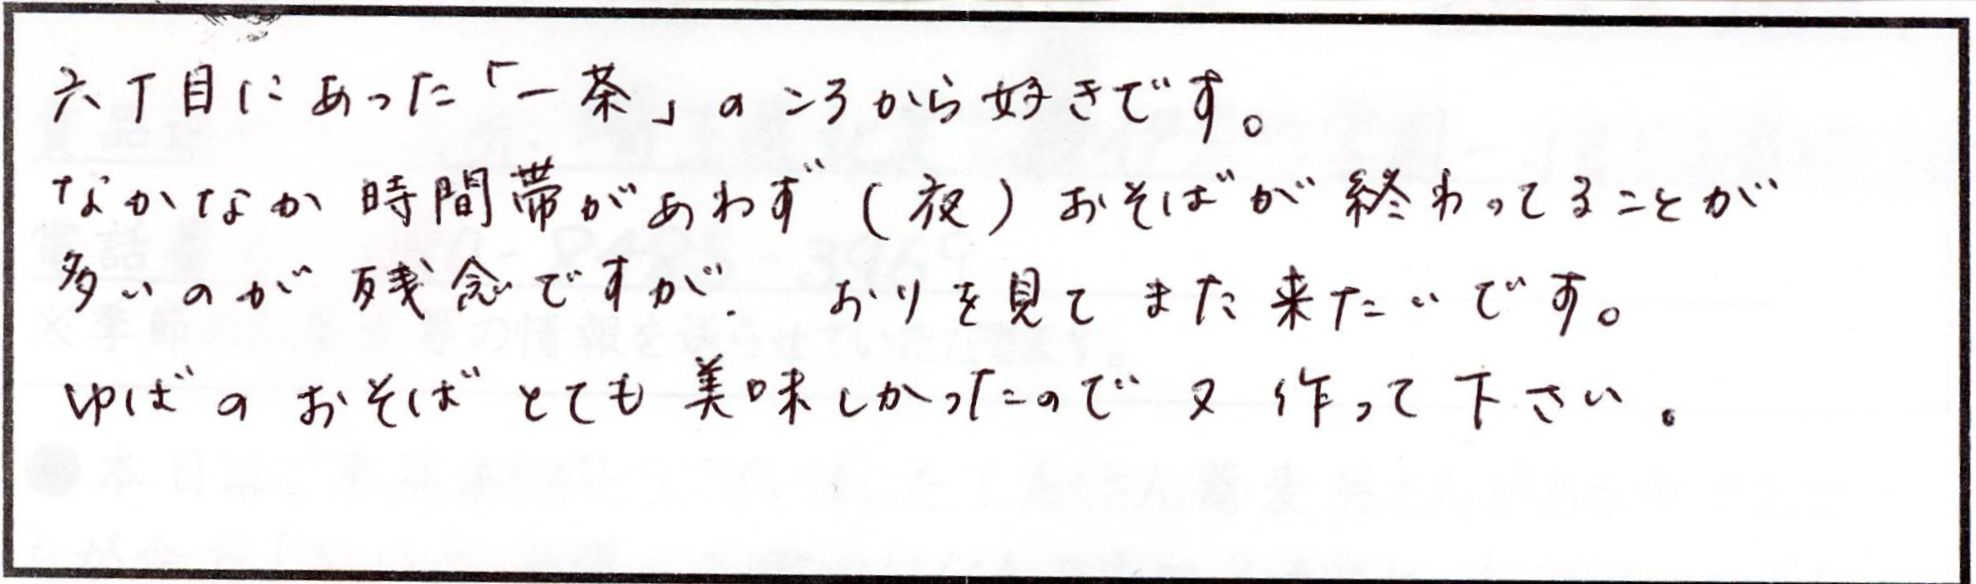 六丁目にあった「一茶」のころから好きです。
なかなか時間帯があわず(夜)おそばが終わってることが
多いのが残念ですが、おりを見てまた来たいです。
ゆばのおそばとても美味しかったので又作って下さい。